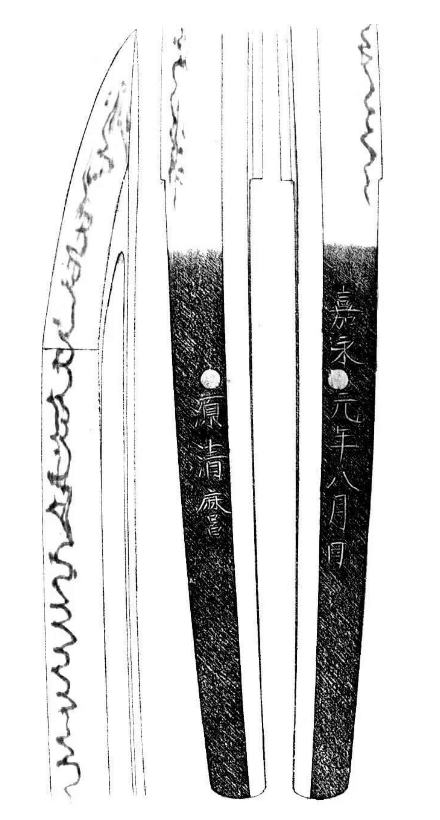 嘉永元年八月日
源清麿